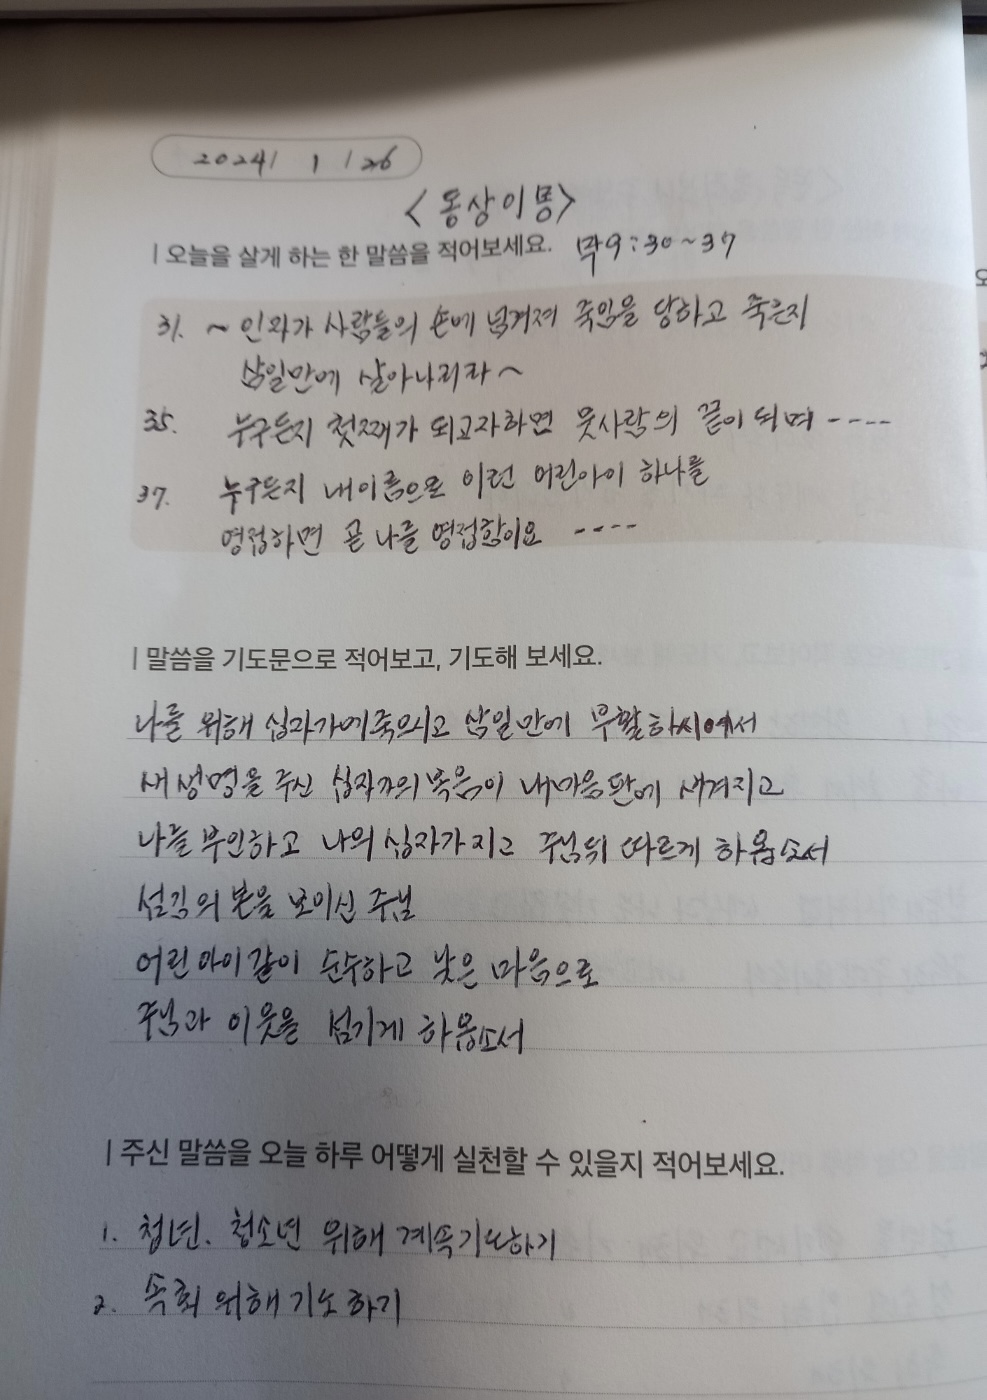 2024/ 1 /26
<동상이몽>
| 오늘을 살게 하는 한 말씀을 적어보세요. 막9:30~37
31. ~ 인자가 사람들의 손에 넘겨져 죽임을 당하고 죽은지
삼일만에 살아나리라~
35. 누구든지 첫째가 되고자하면 뭇사람의 끝이 되며 ----
37. 누구든지 내이름으로 이런 어린아이 하나를
영접하면 곧 나를 영접함이요 ----
| 말씀을 기도문으로 적어보고, 기도해 보세요.
나를 위해 십자가에 죽으시고 삼일만에 부활하시어서
새생명을 주신 십자가의 복음이 내마음판에 새겨지고
나를 부인하고 나의 십자가 지고 주님뒤 따르게 하옵소서
섬김의 본을 보이신 주님
어린아이같이 순수하고 낮은 마음으로
주님과 이웃을 섬기게 하옵소서
| 주신 말씀을 오늘 하루 어떻게 실천할 수 있을지 적어보세요.
1. 청년. 청소년 위해 계속기도하기
2. 속회 위해 기도하기